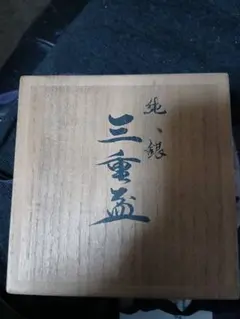 純銀
三重盃